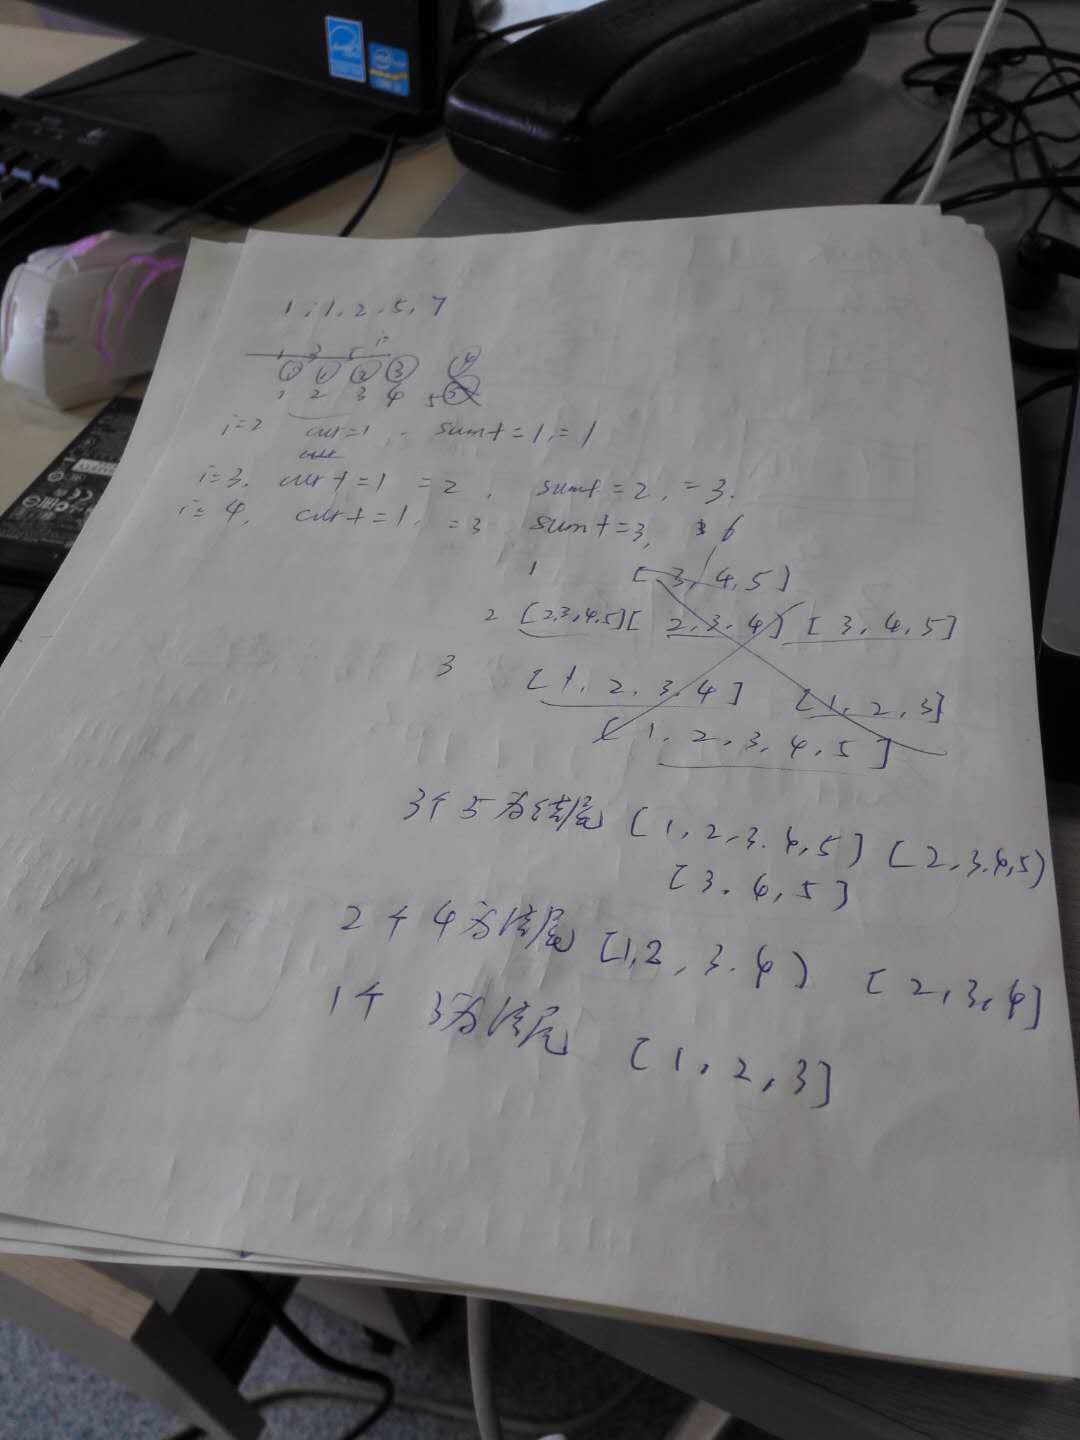 1, 1, 2, 5, 7
1 3 5 i=
① ① ② ③ ④
1 2 3 4 5
i=2 cur=1, sum+=1, =1
i=3, cur+=1 =2, sum+=2, =3.
i=4, cur+=1, =3 sum+=3, 6
1 [3, 4, 5]
2 [2,3,4,5] [2, 3, 4] [3, 4, 5]
3 [1, 2, 3, 4] [1, 2, 3]
[1, 2, 3, 4, 5]
3个5为结尾 [1, 2, 3, 4, 5] [2, 3, 4, 5]
[3, 4, 5]
2个4为结尾 [1, 2, 3, 4] [2, 3, 4]
1个 3为结尾 [1, 2, 3]